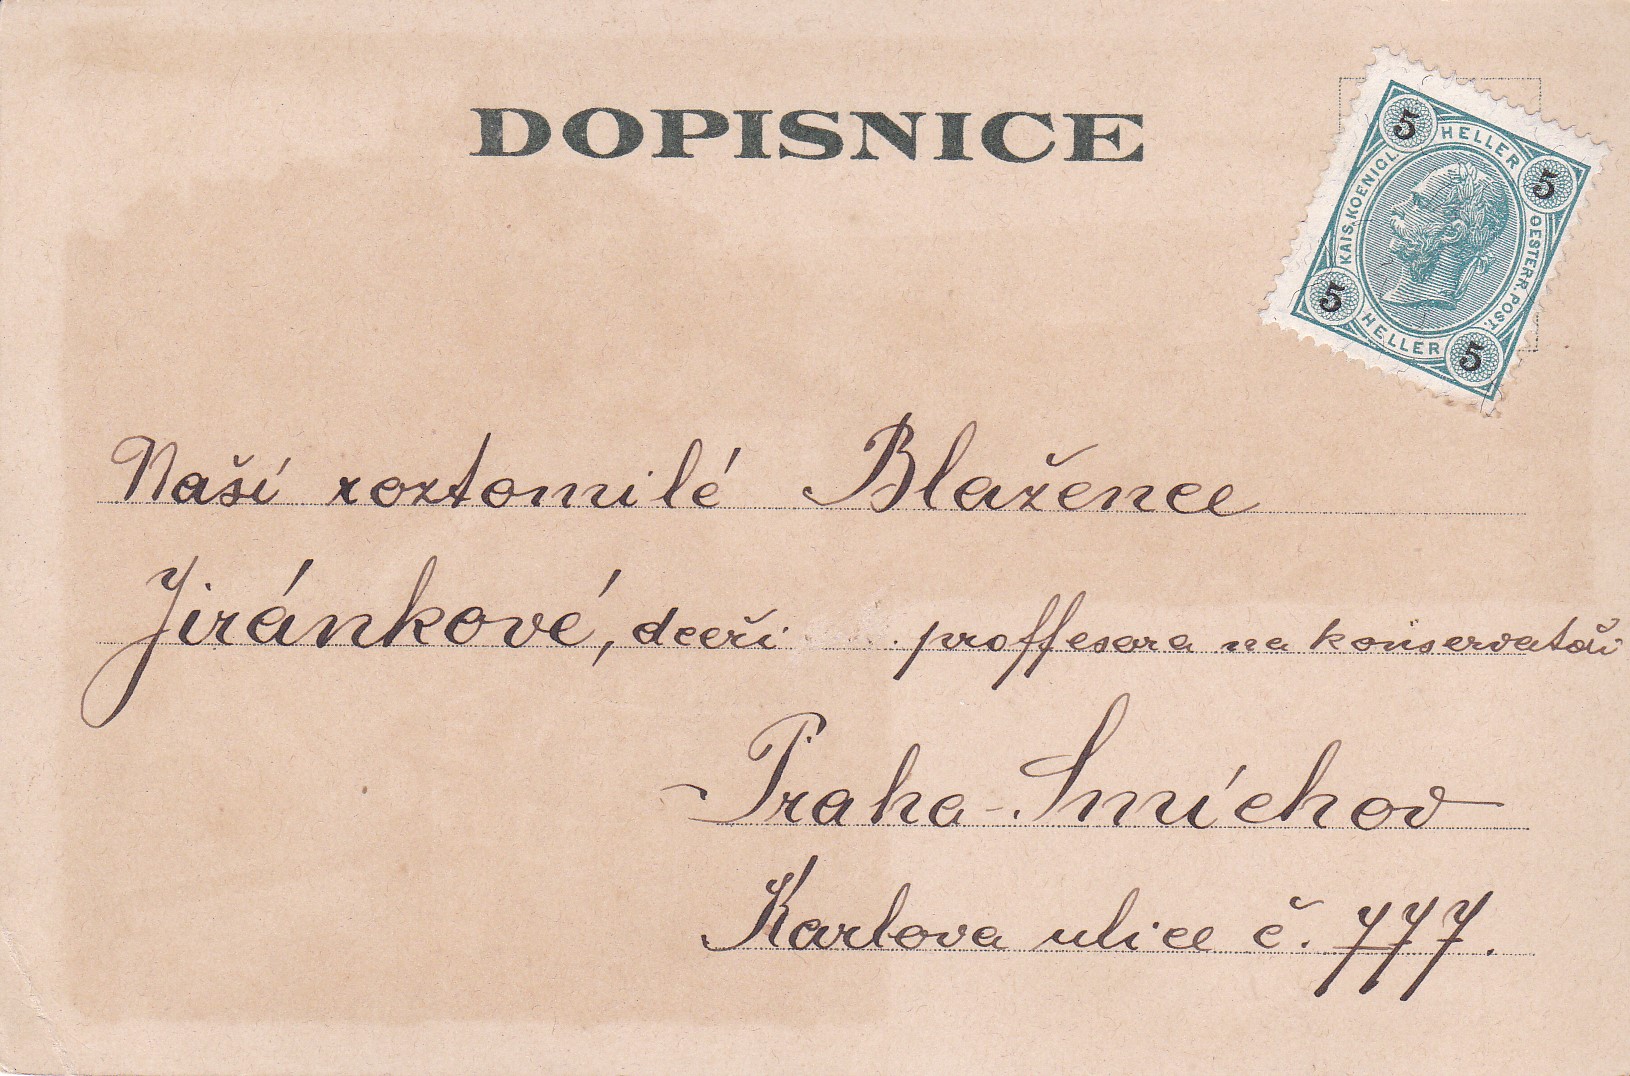 DOPISNICE
5 HELLER 5
KAIS. KOENIGL. OESTERR. POST.
5 HELLER 5
Naší roztomilé Blažence
Jiránkové, dceři proffesora na konservatoři
Praha-Smíchov
Karlova ulice č. 777.